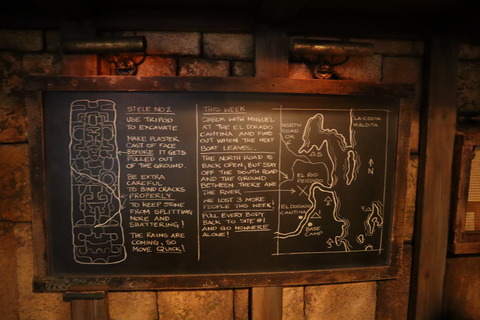 STELE NO 2
USE TRIPOD
TO EXCAVATE
MAKE PLASTER
CAST OF FACE
BEFORE IT GETS
PULLED OUT
OF THE GROUND.
BE EXTRA
CAREFUL
TO BIND CRACKS
PROPERLY
TO KEEP STONE
FROM SPLITTING
MORE AND
SHATTERING!
THE RAINS ARE
COMING, SO
MOVE QUICK!
THIS WEEK
CHECK WITH MIGUEL
AT THE EL DORADO
CANTINA AND FIND
OUT WHEN THE NEXT
BOAT LEAVES.
THE NORTH ROAD IS
BACK OPEN, BUT STAY
OFF THE SOUTH ROAD
AND THE GROUND
BETWEEN THERE AND
THE RIVER.
WE LOST 3 MORE
PEOPLE THIS WEEK!
PULL EVERY BODY
BACK TO SITE #1
AND GO NOWHERE
ALONE!
NORTH
ROAD
OK
LA COSTA
MALDITA
N
EL RIO
PERDIDO
EL DORADO
CANTINA
BASE
CAMP